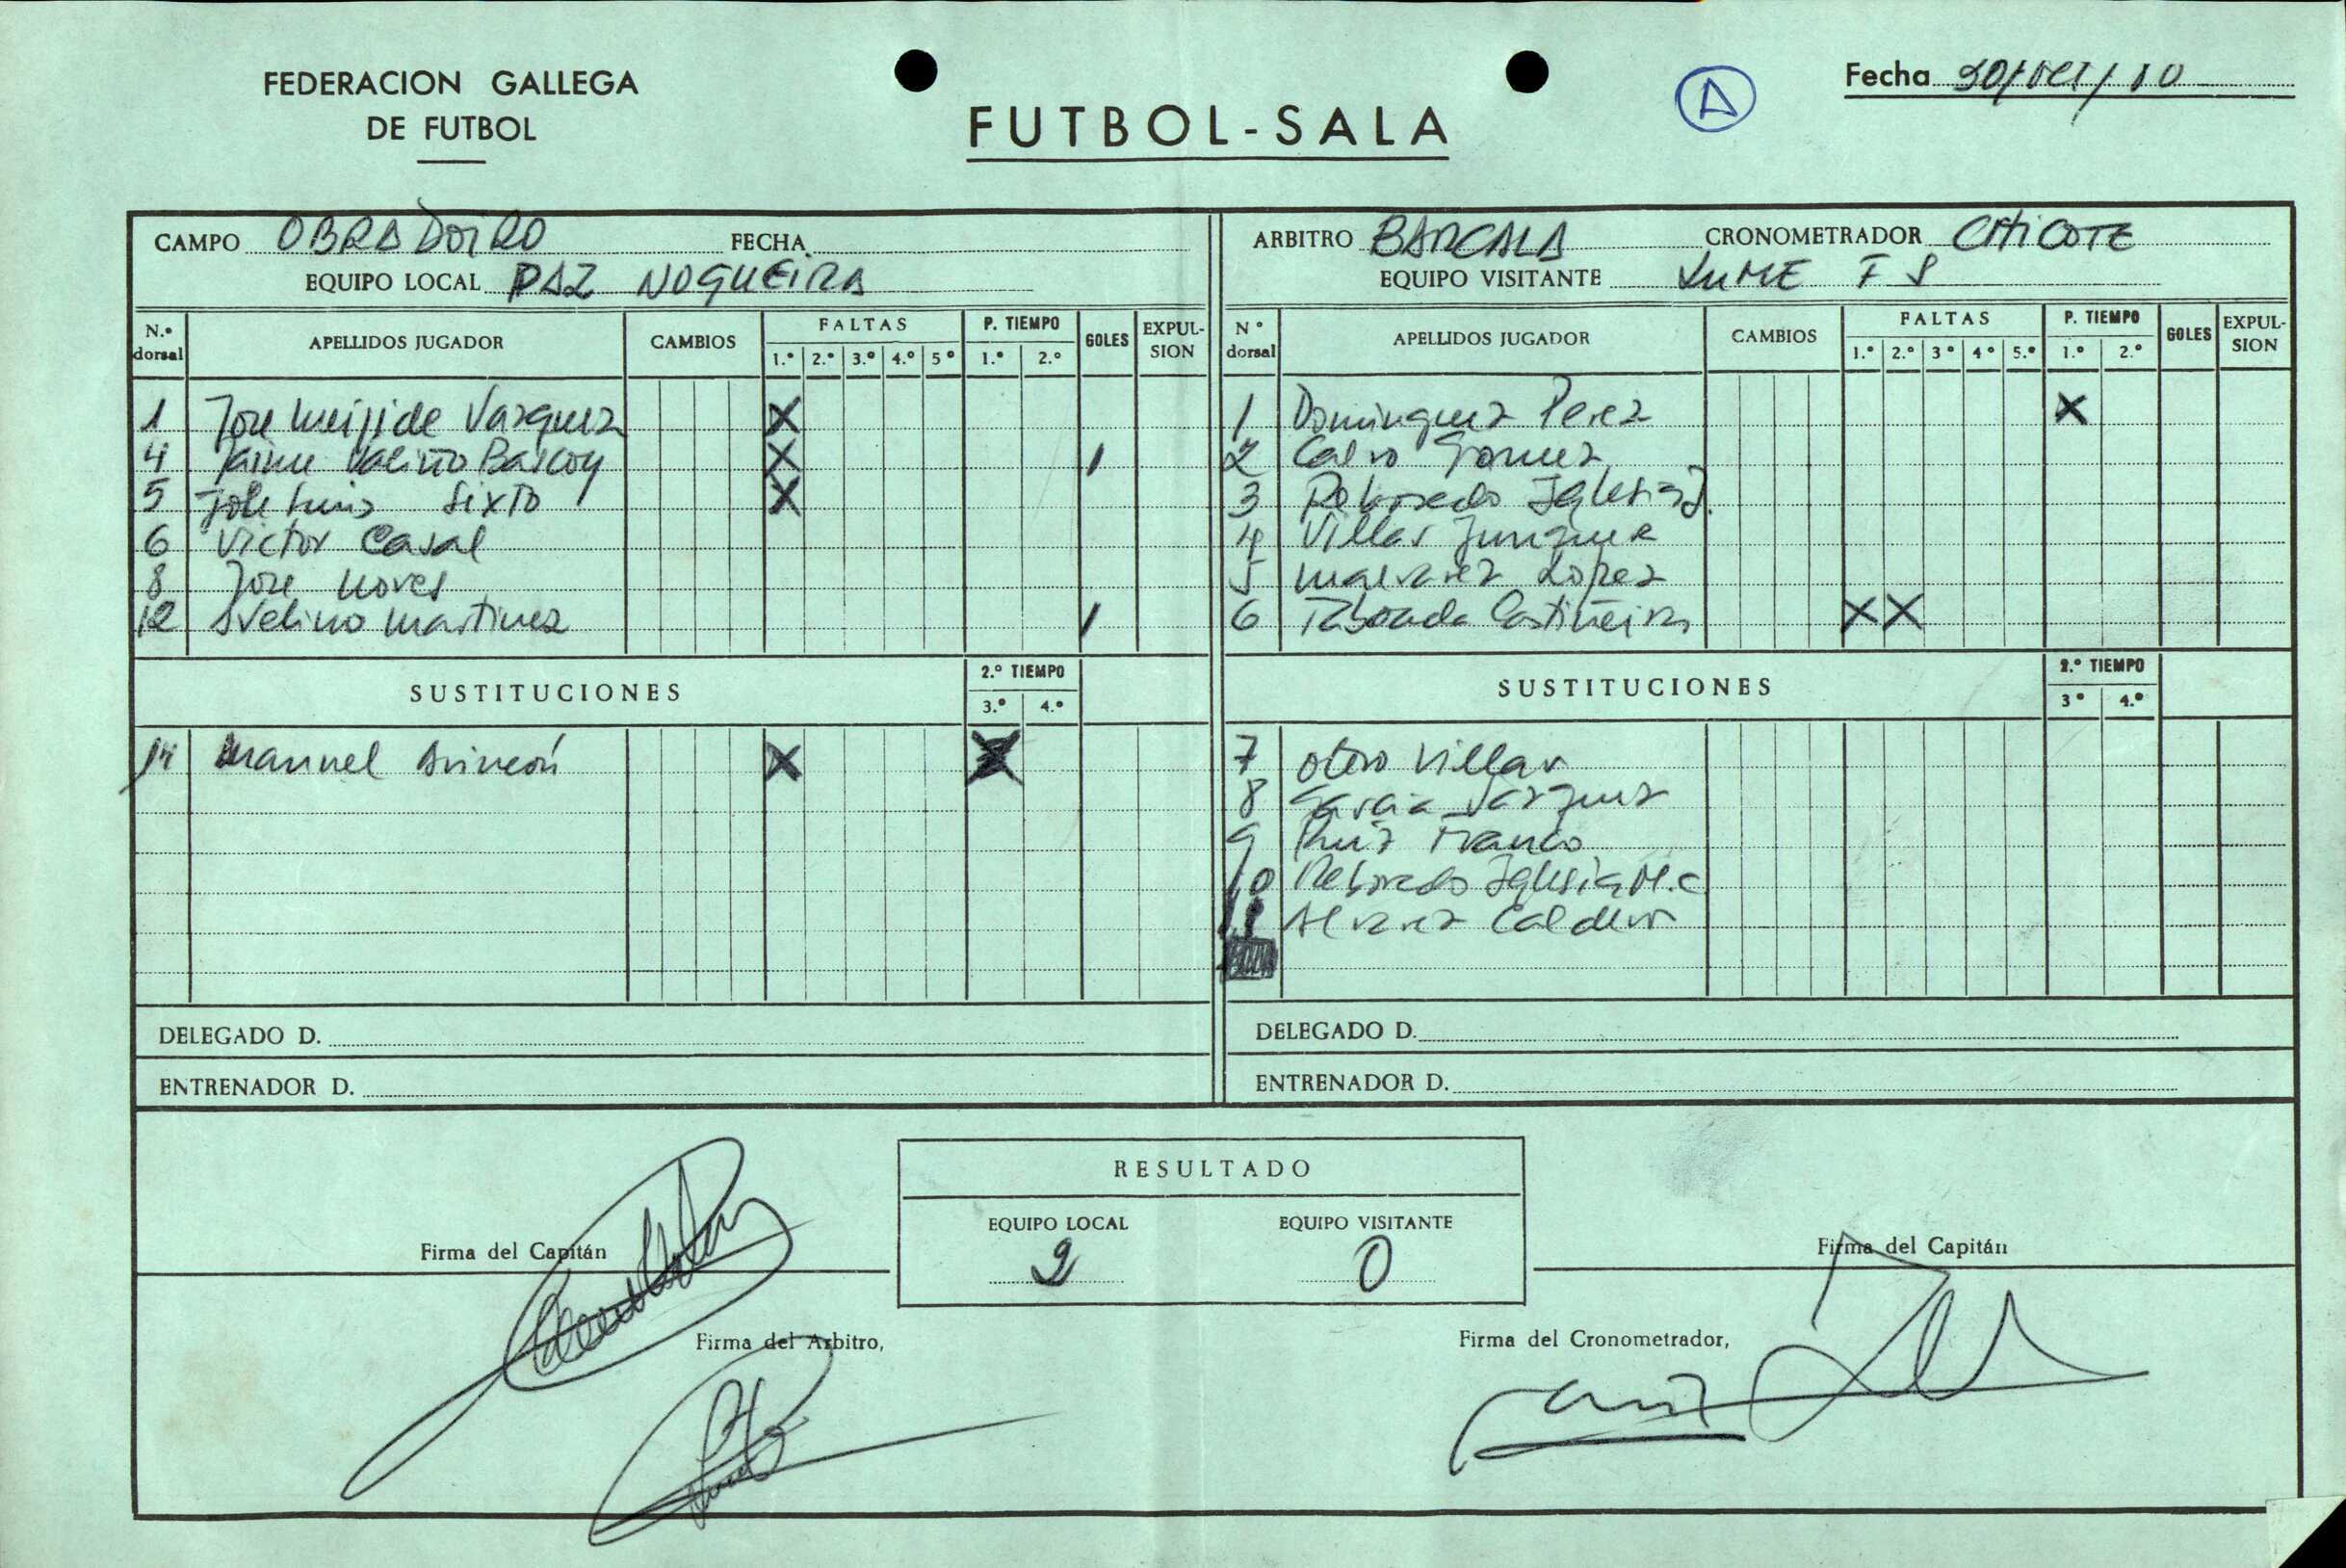 FEDERACION GALLEGA
DE FUTBOL
FUTBOL-SALA
A
Fecha
CAMPO OBRADOIRO FECHA
EQUIPO LOCAL PAZ NOGUEIRA
N.º dorsal APELLIDOS JUGADOR CAMBIOS FALTAS 1.º 2.º 3.º 4.º 5º P. TIEMPO 1.º 2.º GOLES EXPUL-SION
1 Jose Meijide Vazquez X
4 Jaime Valiño Barcoy X 1
5 Jose Luis Sixto X
6 Victor Casal
8 Jose Noves
12 Avelino Martinez 1
SUSTITUCIONES 2.º TIEMPO 3.º 4.º
14 Manuel X X
DELEGADO D.
ENTRENADOR D.
ARBITRO BARCALA CRONOMETRADOR CHICOTE
EQUIPO VISITANTE XUME F S
Nº dorsal APELLIDOS JUGADOR CAMBIOS FALTAS 1.º 2.º 3º 4º 5.º P. TIEMPO 1.º 2.º GOLES EXPUL-SION
1 Dominguez Perez X
2 Calvo Gomez
3 Reboredo Iglesias J.
4 Villar
5 Malvarez Lopez
6 Taboada Castiñeiras X X
SUSTITUCIONES 2.º TIEMPO 3º 4.º
7 Otero Villar
8 Garcia Vazquez
9 Ruiz Franco
10 Reboredo Iglesias M.C
Alvarez Calderon
DELEGADO D.
ENTRENADOR D.
RESULTADO
EQUIPO LOCAL EQUIPO VISITANTE
2 0
Firma del Capitán
Firma del Capitán
Firma del Arbitro,
Firma del Cronometrador,